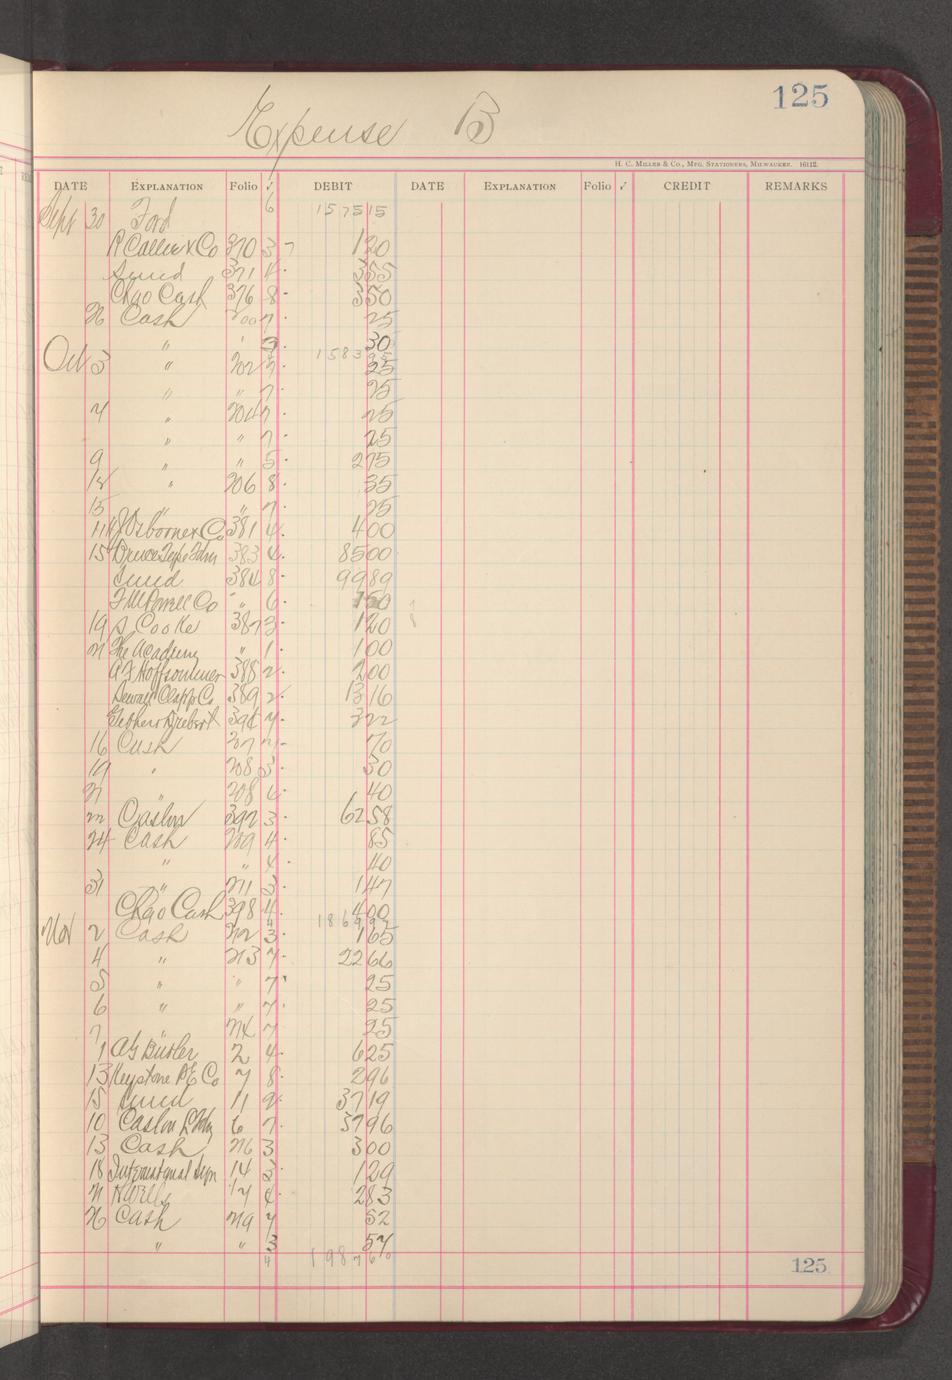 125
Expense B
H. C. Miller & Co., Mfg. Stationers, Milwaukee. 16112.
DATE Explanation Folio ✓ DEBIT DATE Explanation Folio ✓ CREDIT REMARKS
Sept 30 Ford 6 1575 15
P Collier & Co 370 3 1 20
Sund 371 4 3 55
Chgo Cash 376 8 3 50
26 Cash 200 7 25
" " 3 30
1583
Oct 3 " 202 7 25
" " 7 25
4 " 204 7 25
" " 7 25
9 " " 5 2 75
12 " 206 8 35
15 " " 7 25
11 Osborne & Co 381 4 4 00
15 Bruce Type Fdry 383 4 85 00
Sund 384 8 99 89
F M Powell Co " 6 1 50
19 S Cooke 387 3 1 20
21 The Academy " 1 1 00
A F Hoffsommer 388 2 2 00
Dewalt Clapp Co 389 2 13 16
394 7 3 22
16 Cash 207 70
19 " 208 3 30
21 " 208 40
22 Caslon 392 3 62 58
24 Cash 209 4 85
" " 4 40
31 " 211 3 1 47
Chgo Cash 398 4 4 00
4
Nov 2 Cash 212 3 1 65
4 " 213 7 22 66
5 " " 7 25
6 " " 7 25
7 " 214 7 25
1 A G Butler 2 4 6 25
13 Keystone P E Co 7 8 2 96
15 Sund 11 2 37 19
10 Caslon 6 7 37 96
13 Cash 216 3 3 00
18 International 14 3 1 29
21 17 4 2 83
26 Cash 219 7 52
" " 3 57
4 1987 6
125